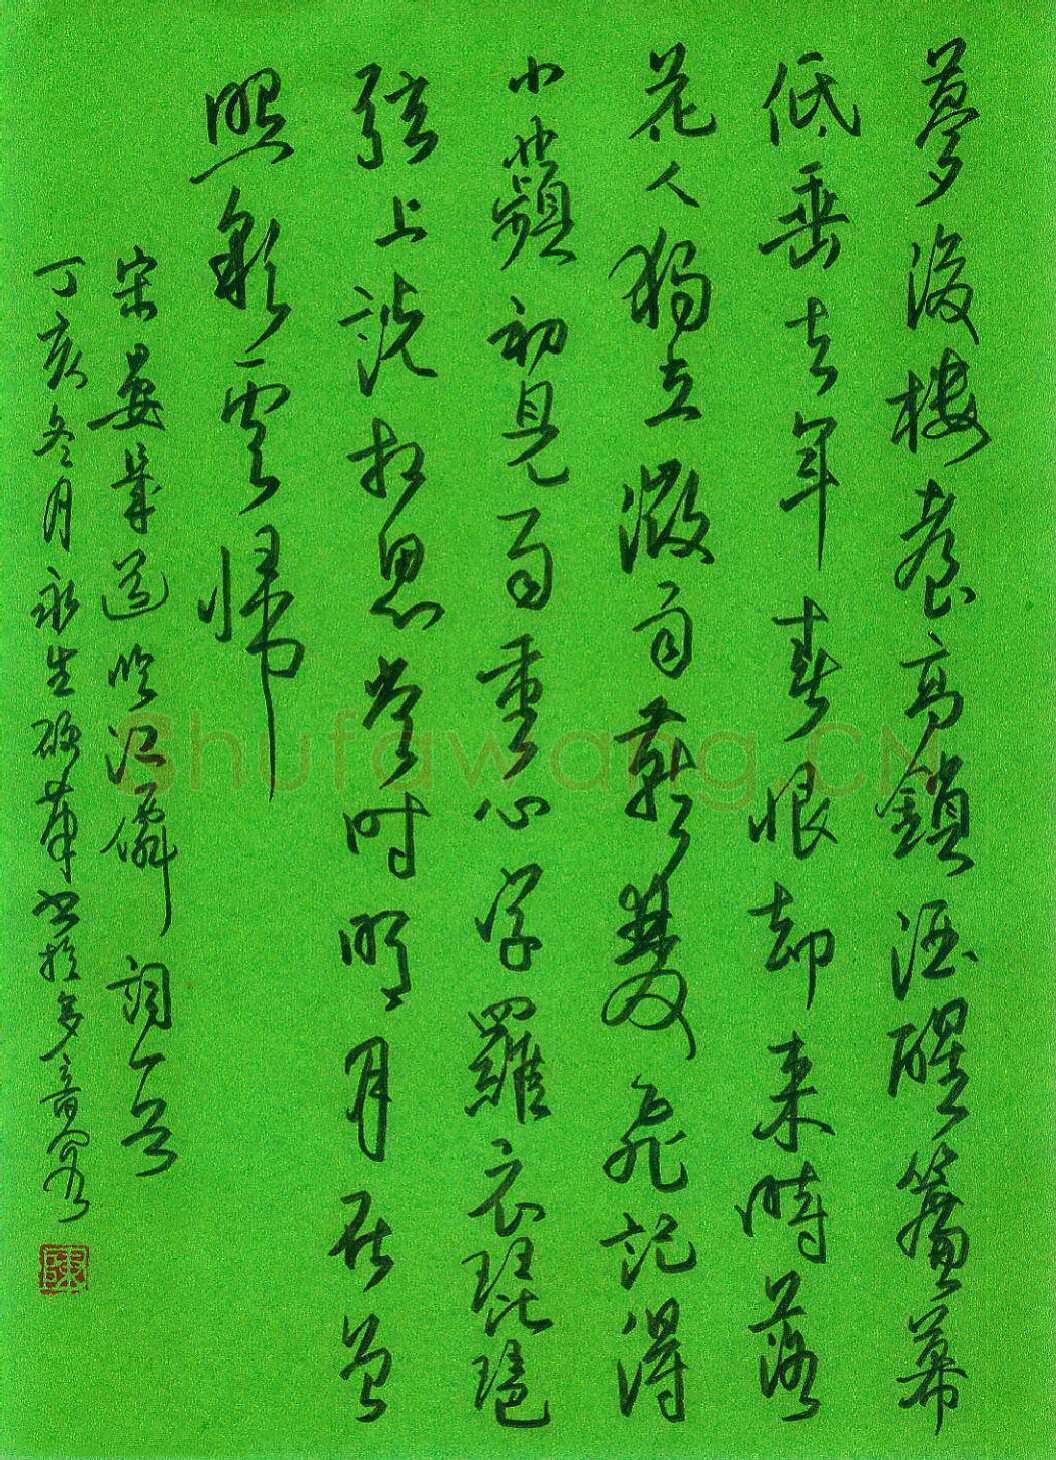 夢後樓臺高鎖酒醒簾幕
低垂去年春恨却来時落
花人獨立微雨燕雙飛記得
小蘋初見兩重心字羅衣琵琶
弦上说相思当时明月在曾
照彩雲歸
宋晏幾道临江僊词一首
丁亥冬月永生硬筆书於
Shufawang.CN